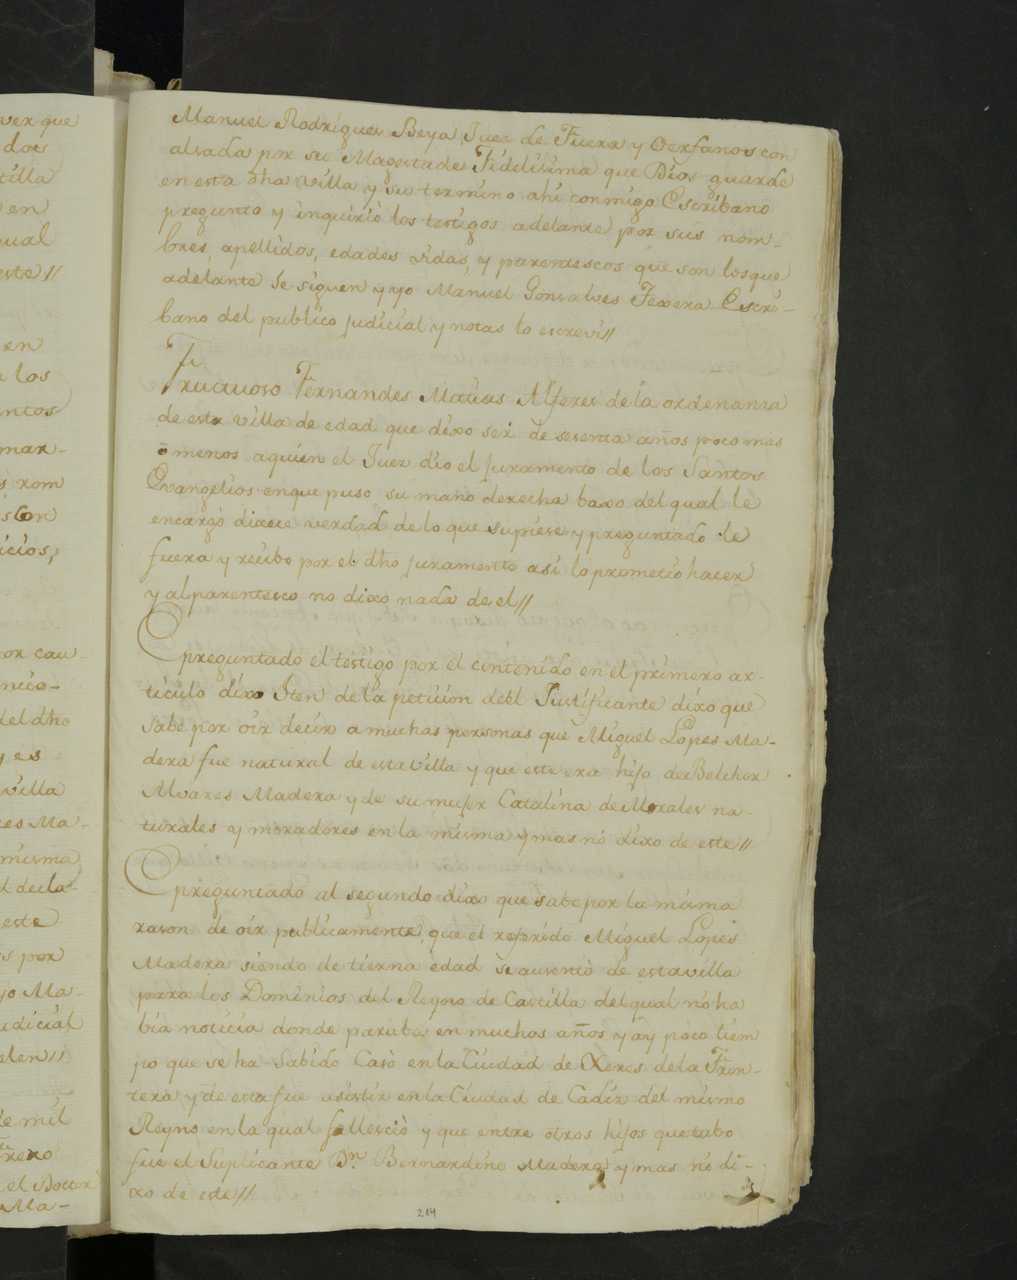 ver que
dos
tilla
en
qual
este//
en
los
antos
mar-
rom
s con
icios,
or cau-
nico-
del dho
y es
villa
res Ma-
misma
decla-
este
s por
jo Ma-
udicial
elen//
de mil
el Doctor
Ma-
Manuel Rodrigues Beya Juez de Fuera y Oerfanos con
alsada por su Magestade Fidelisima que Dios guarde
en esta dha villa y su termino ahi conmigo Escribano
pregunto y inquirio los testigos adelante por sus nom-
bres, apellidos, edades vidas, y parentescos que son los que
adelante se siguen y yo Manuel Gonsalves Texera Escri-
bano del publico judicial y notas lo escrevi//
Frutuoso Fernandes Matias Alferes de la ordenanza
de esta villa de edad que dixo ser de sesenta años poco mas
o menos a quien el Juez dio el juramento de los Santos
Evangelios en que puso su mano derecha baxo del qual le
encargó dixese verdad de lo que supiese y preguntado le
fuera y recibo por el dho juramento asi lo prometio hacer
y al parentesco no dixo nada de el//
E preguntado el testigo por el contenido en el primero ar-
ticulo dixo Iten de la peticion del Justificante dixo que
sabe por oir decir a muchas personas que Miguel Lopes Ma-
dera fue natural de esta villa y que este era hijo de Belchor
Alvares Madera y de su mujer Catalina de Morales na-
turales y moradores en la misma y mas no dixo de este//
E preguntado al segundo dixo que sabe por la misma
rason de oir publicamente, que el referido Miguel Lopes
Madera siendo de tierna edad se ausentó de esta villa
para los Dominios del Reyno de Castilla del qual no ha
bia noticia donde paraba en muchos años y ay poco tiem
po que se ha sabido Casó en la Ciudad de Xeres de la Fron-
tera y de esta fue asistir en la Ciudad de Cadiz del mismo
Reyno en la qual fallesció y que entre otros hijos que tubo
fue el Suplicante Dn. Bernardino Madera y mas no di-
xo de este//
214